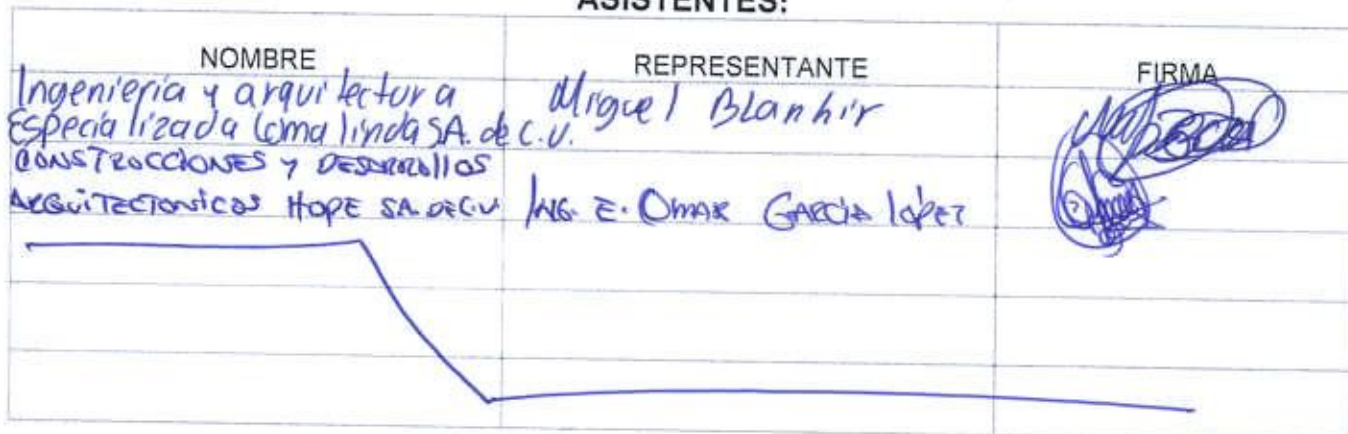 ASISTENTES:
NOMBRE REPRESENTANTE FIRMA
Ingenieria y arquitectura Miguel Blanhir
Especializada Loma linda S.A. de C.V.
CONSTRUCCIONES y DESARROLLOS
ARQUITECTONICOS HOPE SA. DE C.V ING. E. OMAR GARCÍA LÓPEZ